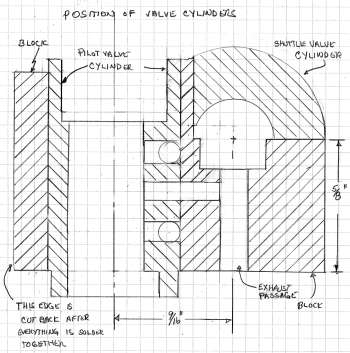 POSITION OF VALVE CYLINDERS
BLOCK
PILOT VALVE
CYLINDER
SHUTTLE VALVE
CYLINDER
5/8"
EXHAUST
PASSAGE
BLOCK
9/16"
THIS EDGE IS
CUT BACK AFTER
EVERYTHING IS SOLDER
TOGETHER